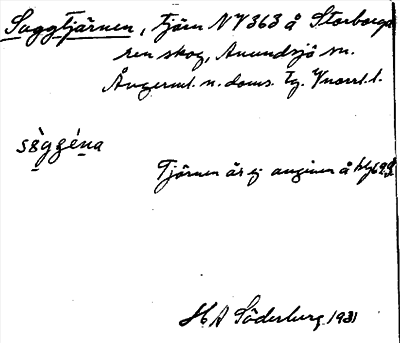 Saggtjärnen, tjärn NV 363 å Storborga
ren skog, Anundsjö sn.
Ångerml. n. doms. tg. Vnorrl. l.
sàggéna
Tjärnen är ej angiven å bl 62
H A Söderberg 1931